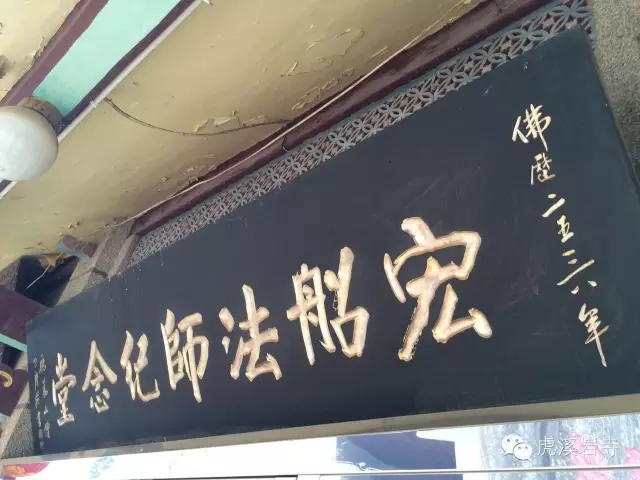 佛歷二五三六年
宏船法師紀念堂
虎溪岩寺